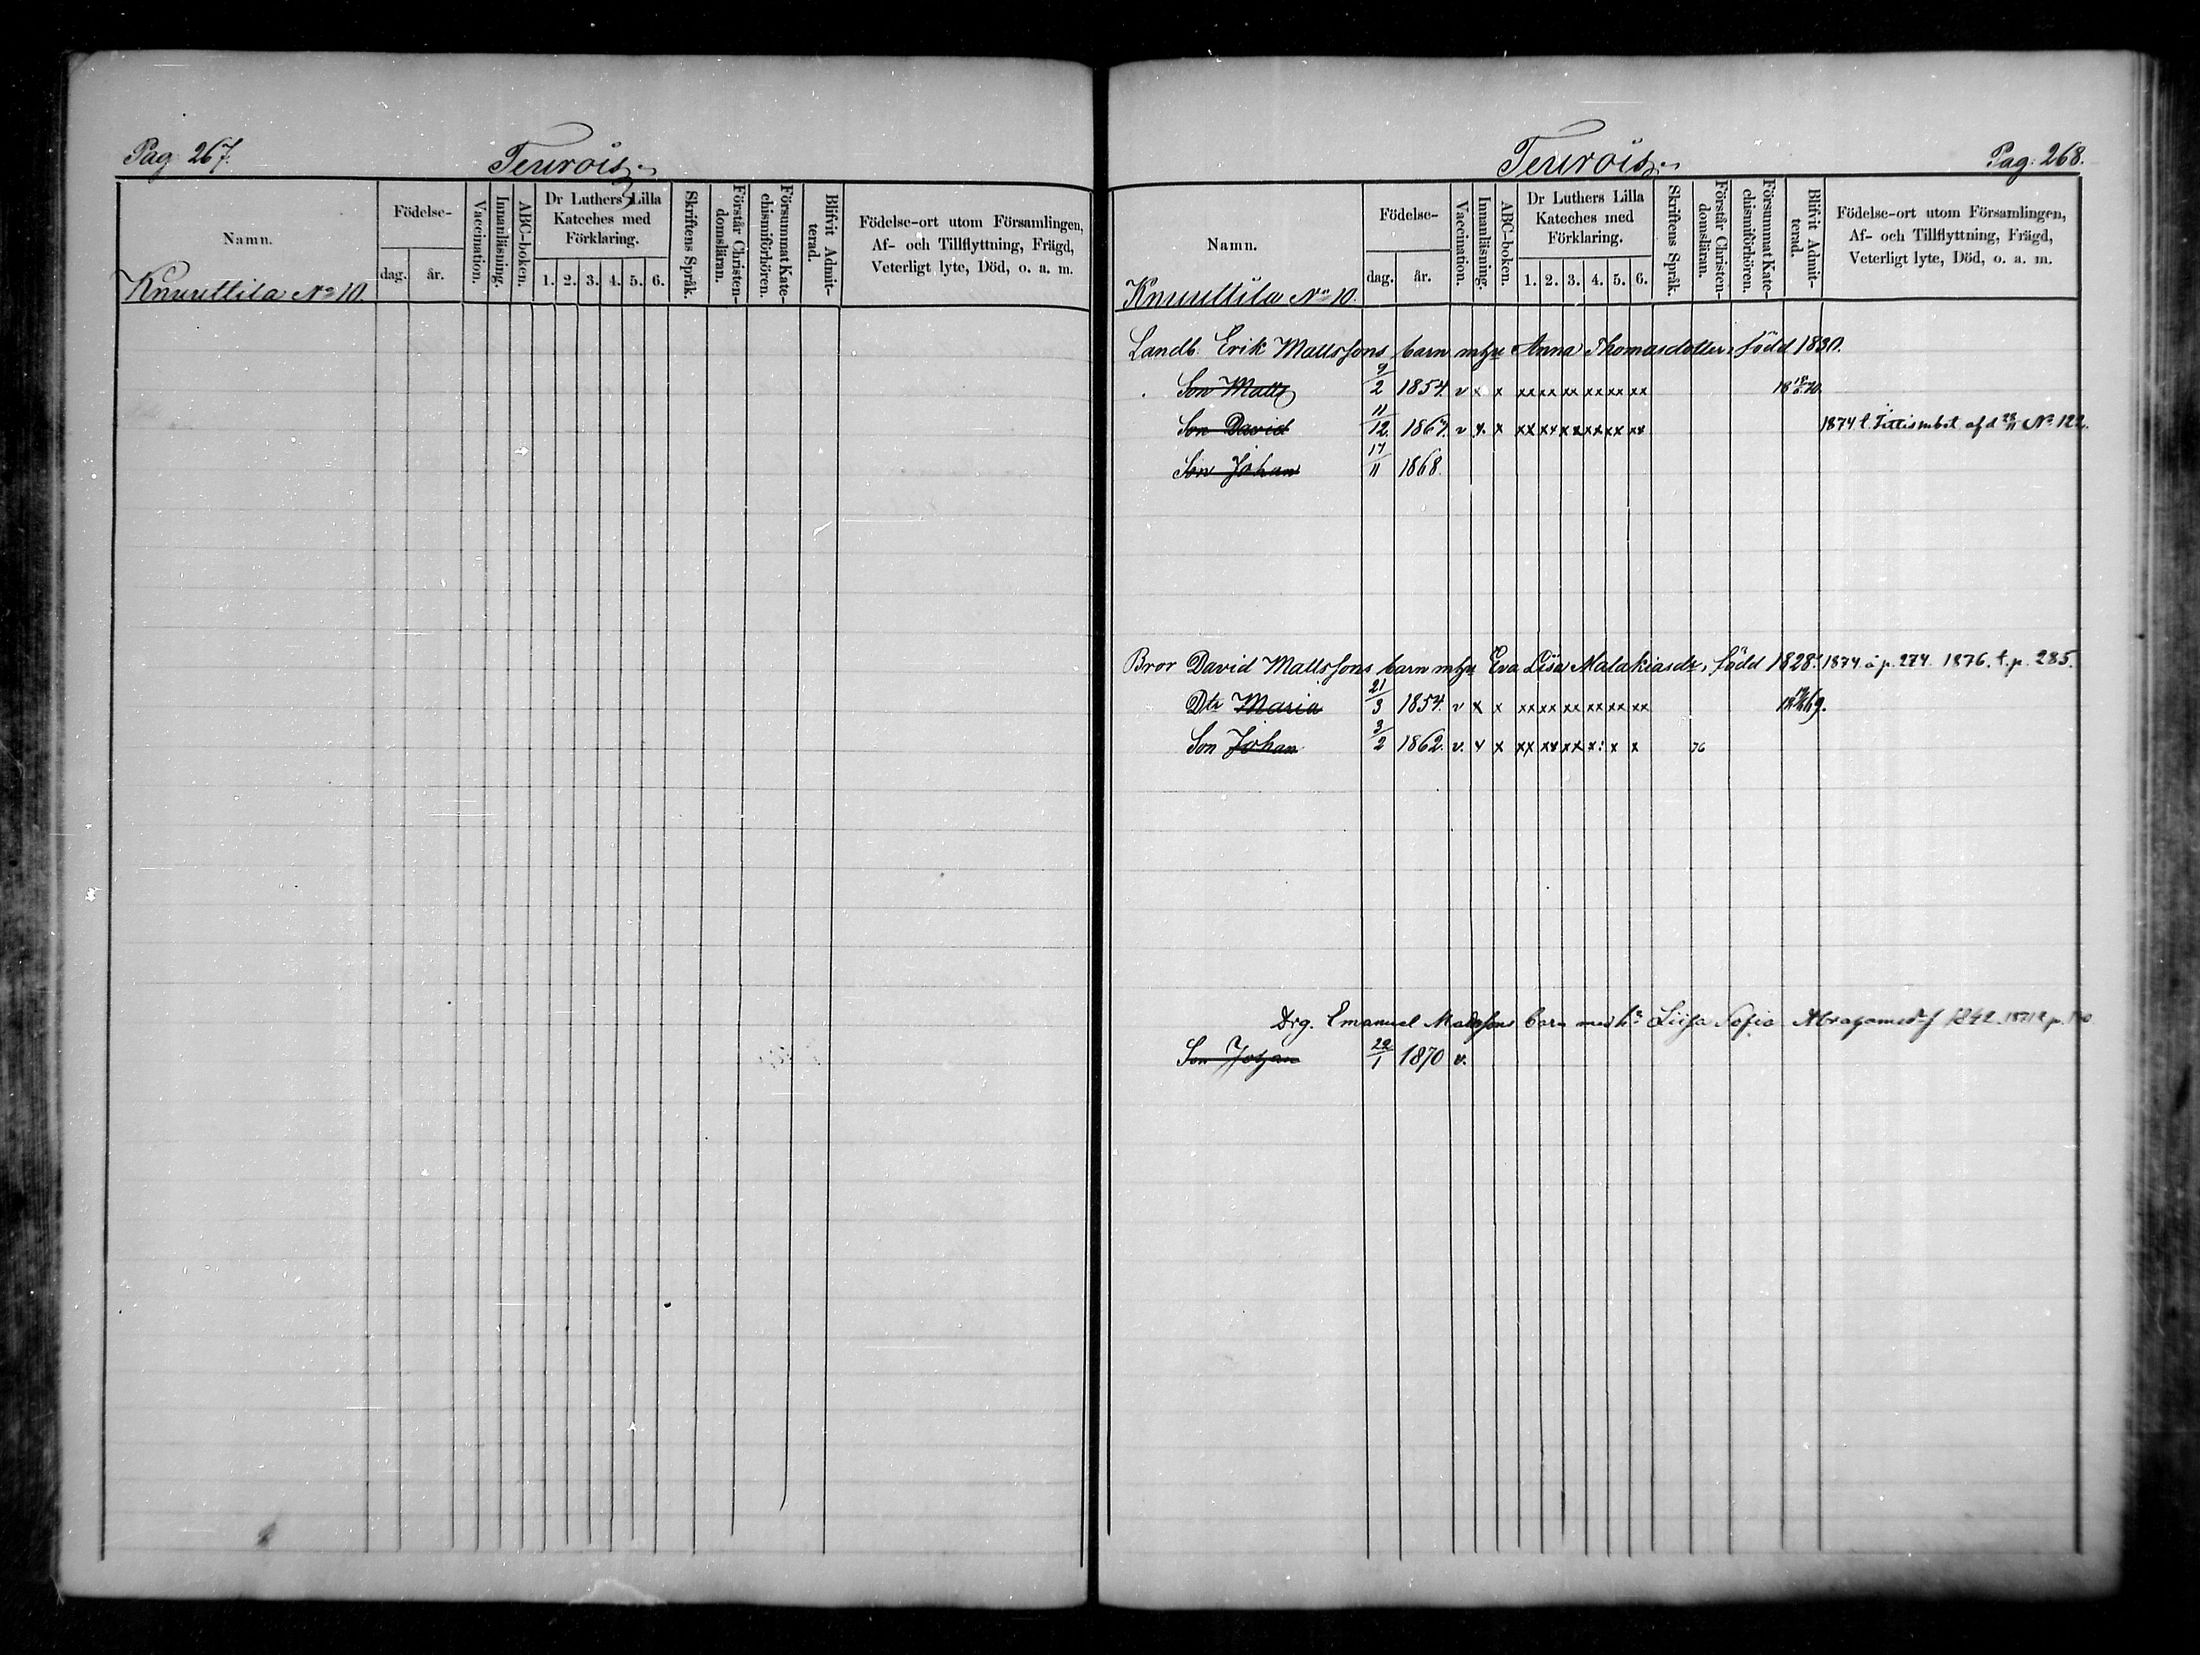 Pag. 267.
Teurois
Namn.
Knuuttila No 10.
Födelse-
dag.
år.
Vaccination.
Innanläsning.
ABC-boken.
Dr Luthers Lilla
Kateches med
Förklaring.
1. 2. 3. 4. 5. 6.
Skriftens Språk.
Förstår Christen-
domsläran.
Försummat Kate-
chismiförhören.
Blifvit Admit-
terad.
Födelse-ort utom Församlingen,
Af- och Tillflyttning, Frägd,
Veterligt lyte, Död, o. a. m.
Teurois
Pag. 268.
Namn.
Knuuttila No 10.
Födelse-
dag.
år.
Vaccination.
Innanläsning.
ABC-boken.
Dr Luthers Lilla
Kateches med
Förklaring.
1. 2. 3. 4. 5. 6.
Skriftens Språk.
Förstår Christen-
domsläran.
Försummat Kate-
chismiförhören.
Blifvit Admit-
terad.
Födelse-ort utom Församlingen,
Af- och Tillflyttning, Frägd,
Veterligt lyte, Död, o. a. m.
Landb. Erik Mattssons barn m hu Anna Thomasdotter, född 1830.
Son Matts 9/2 1854. v x x xx xx xx xx xx xx
Son David 11/12 1867. v x. x xx xx xx xx xx xx 1874 t. af d No 122.
Son Johan 17/11 1868.
Bror David Mattssons barn m hu Eva Lisa Malakiasdr, född 1828. 1874 à p. 274. 1876. t. p. 285.
Dtr Maria 21/3 1854. v x x xx xx xx xx xx xx
Son Johan 3/2 1862. v. x x xx xx xx x: x x 76
Drg. Emanuel Mattssons barn med h: Liisa Sofia 1842.
Son Johan 22/1 1870 v.